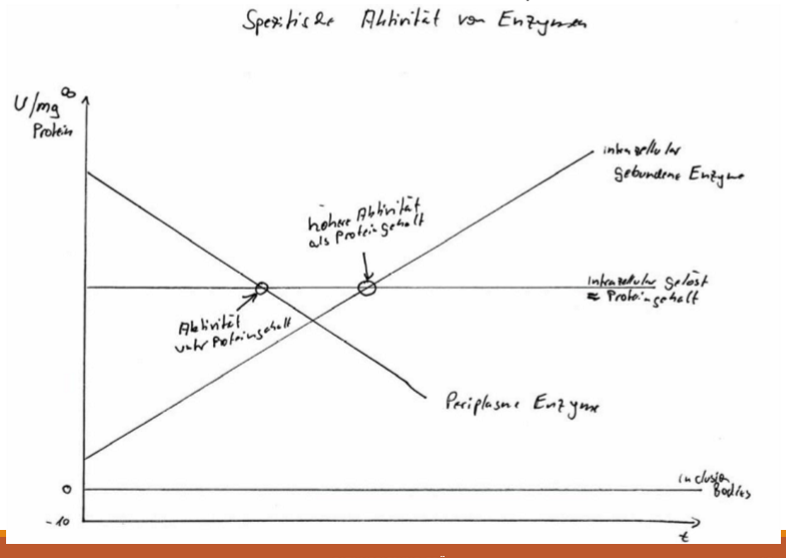 Spezifische Aktivität von Enzymen
U/mg
Protein
∞
intrazellular
gebundene Enzyme
höhere Aktivität
als Proteingehalt
intrazellular gelöst
≈ Proteingehalt
Aktivität
unter Proteingehalt
Periplasma Enzyme
inclusion
Bodies
0
-10
t